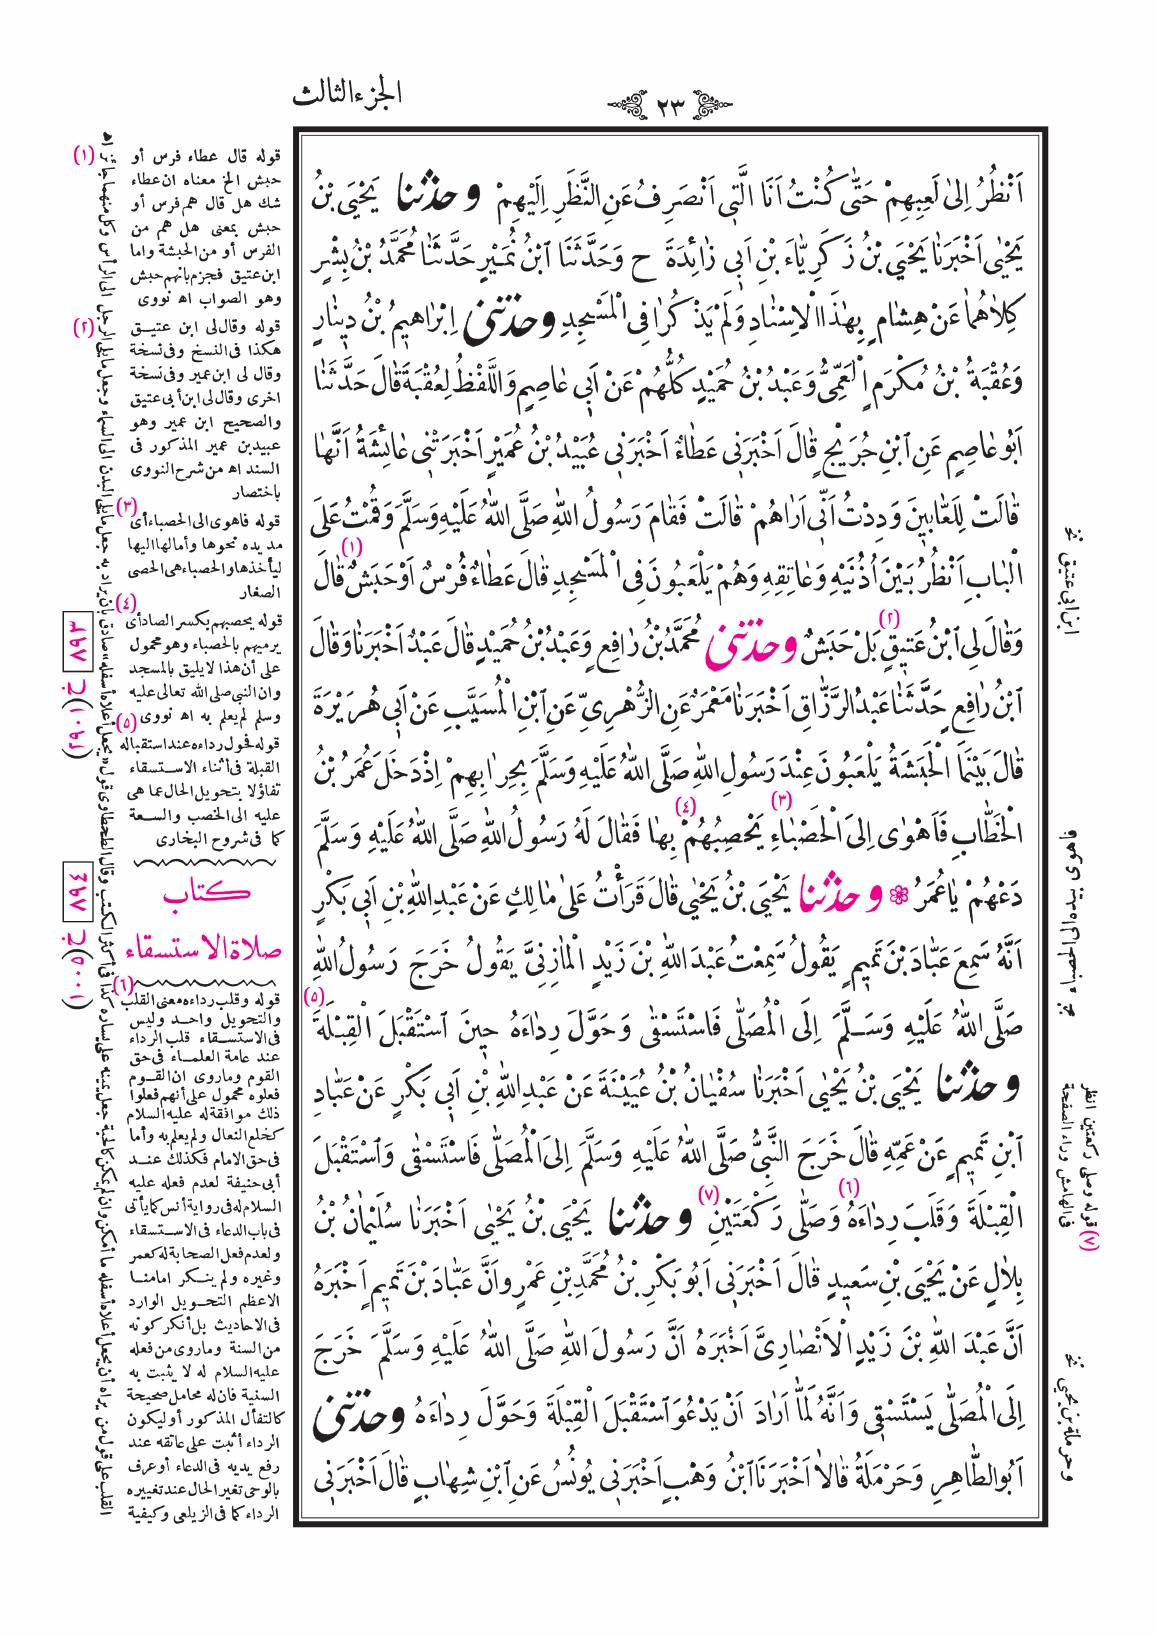 الجزء الثالث
٢٣
اَنْظُرُ اِلىٰ لَعِبِهِمْ حَتّٰى كُنْتُ اَنَا الَّتِى اَنْصَرِفُ عَنِ النَّظَرِ اِلَيْهِمْ وحدثنا يَحْيَى بْنُ
يَحْيٰى اَخْبَرَنٰا يَحْيَى بْنُ زَكَرِيّٰاءَ بْنِ اَبى زٰائِدَةَ ح وَحَدَّثَنَا ابْنُ نُمَيْرٍ حَدَّثَنٰا مُحَمَّدُ بْنُ بِشْرٍ
كِلاٰهُمٰا عَنْ هِشٰامٍ بِهٰذَا الْاِسْنٰادِ وَلَمْ يَذْكُرٰا فِى الْمَسْجِدِ وحدثنى اِبْرٰاهِيمُ بْنُ دِينٰارٍ
وَعُقْبَةُ بْنُ مُكْرَمٍ الْعَمِّىُّ وَعَبْدُ بْنُ حُمَيْدٍ كُلُّهُمْ عَنْ اَبى عٰاصِمٍ وَاللَّفْظُ لِعُقْبَةَ قٰالَ حَدَّثَنٰا
اَبُو عٰاصِمٍ عَنِ ابْنِ جُرَيْجٍ قٰالَ اَخْبَرَنى عَطٰاءٌ اَخْبَرَنى عُبَيْدُ بْنُ عُمَيْرٍ اَخْبَرَتْنى عٰائِشَةُ اَنَّهٰا
قٰالَتْ لِلَعّٰابينَ وَدِدْتُ اَنّى اَرٰاهُمْ قٰالَتْ فَقٰامَ رَسُولُ اللهِ صَلَّى اللهُ عَلَيْهِ وَسَلَّمَ وَقُمْتُ عَلَى
الْبٰابِ اَنْظُرُ بَيْنَ اُذُنَيْهِ وَعٰاتِقِهِ وَهُمْ يَلْعَبُونَ فِى الْمَسْجِدِ قٰالَ عَطٰاءٌ فُرْسٌ اَوْ حَبَشٌ (١) قٰالَ
وَقٰالَ لِى ابْنُ عَتِيقٍ (٢) بَلْ حَبَشٌ وحدثنى مُحَمَّدُ بْنُ رٰافِعٍ وَعَبْدُ بْنُ حُمَيْدٍ قٰالَ عَبْدٌ اَخْبَرَنٰا وَقٰالَ
ابْنُ رٰافِعٍ حَدَّثَنٰا عَبْدُ الرَّزّٰاقِ اَخْبَرَنٰا مَعْمَرٌ عَنِ الزُّهْرِىِّ عَنِ ابْنِ الْمُسَيَّبِ عَنْ اَبى هُرَيْرَةَ
قٰالَ بَيْنَمَا الْحَبَشَةُ يَلْعَبُونَ عِنْدَ رَسُولِ اللهِ صَلَّى اللهُ عَلَيْهِ وَسَلَّمَ بِحِرٰابِهِمْ اِذْ دَخَلَ عُمَرُ بْنُ
الْخَطّٰابِ فَاَهْوٰى اِلَى الْحَصْبٰاءِ (٣) يَحْصِبُهُمْ (٤) بِهٰا فَقٰالَ لَهُ رَسُولُ اللهِ صَلَّى اللهُ عَلَيْهِ وَسَلَّمَ
دَعْهُمْ يٰا عُمَرُ ❁ وحدثنا يَحْيَى بْنُ يَحْيٰى قٰالَ قَرَأْتُ عَلىٰ مٰالِكٍ عَنْ عَبْدِ اللهِ بْنِ اَبى بَكْرٍ
اَنَّهُ سَمِعَ عَبّٰادَ بْنَ تَميمٍ يَقُولُ سَمِعْتُ عَبْدَ اللهِ بْنَ زَيْدٍ الْمٰازِنِىَّ يَقُولُ خَرَجَ رَسُولُ اللهِ
صَلَّى اللهُ عَلَيْهِ وَسَلَّمَ اِلَى الْمُصَلّٰى فَاسْتَسْقٰى وَحَوَّلَ رِدٰاءَهُ حينَ اسْتَقْبَلَ الْقِبْلَةَ (٥)
وحدثنا يَحْيَى بْنُ يَحْيٰى اَخْبَرَنٰا سُفْيٰانُ بْنُ عُيَيْنَةَ عَنْ عَبْدِ اللهِ بْنِ اَبى بَكْرٍ عَنْ عَبّٰادِ
ابْنِ تَميمٍ عَنْ عَمِّهِ قٰالَ خَرَجَ النَّبِىُّ صَلَّى اللهُ عَلَيْهِ وَسَلَّمَ اِلَى الْمُصَلّٰى فَاسْتَسْقٰى وَاسْتَقْبَلَ
الْقِبْلَةَ وَقَلَبَ رِدٰاءَهُ (٦) وَصَلّٰى رَكْعَتَيْنِ (٧) وحدثنا يَحْيَى بْنُ يَحْيٰى اَخْبَرَنٰا سُلَيْمٰانُ بْنُ
بِلاٰلٍ عَنْ يَحْيَى بْنِ سَعيدٍ قٰالَ اَخْبَرَنى اَبُو بَكْرِ بْنُ مُحَمَّدِ بْنِ عَمْرٍو اَنَّ عَبّٰادَ بْنَ تَميمٍ اَخْبَرَهُ
اَنَّ عَبْدَ اللهِ بْنَ زَيْدٍ الْاَنْصٰارِىَّ اَخْبَرَهُ اَنَّ رَسُولَ اللهِ صَلَّى اللهُ عَلَيْهِ وَسَلَّمَ خَرَجَ
اِلَى الْمُصَلّٰى يَسْتَسْقى وَاَنَّهُ لَمّٰا اَرٰادَ اَنْ يَدْعُوَ اسْتَقْبَلَ الْقِبْلَةَ وَحَوَّلَ رِدٰاءَهُ وحدثنى
اَبُو الطّٰاهِرِ وَحَرْمَلَةُ قٰالاٰ اَخْبَرَنَا ابْنُ وَهْبٍ اَخْبَرَنى يُونُسُ عَنِ ابْنِ شِهٰابٍ قٰالَ اَخْبَرَنى
(١) قوله قال عطاء فرس أو
حبش الخ معناه ان عطاء
شك هل قال هم فرس أو
حبش بمعنى هل هم من
الفرس أو من الحبشة واما
ابن عتيق فجزم بانهم حبش
وهو الصواب اه نووى
(٢) قوله وقال لى ابن عتيق
هكذا فى النسخ وفى نسخة
وقال لى ابن عمير وفى نسخة
اخرى وقال لى ابن أبى عتيق
والصحيح ابن عمير وهو
عبيد بن عمير المذكور فى
السند اه من شرح النووى
باختصار
(٣) قوله فاهوى الى الحصباء أى
مد يده نحوها وأمالها اليها
ليأخذها والحصباء هى الحصى
الصغار
(٤) قوله يحصبهم بكسر الصاد أى
يرميهم بالحصباء وهو محمول
على أن هذا لا يليق بالمسجد
وان النبى صلى الله تعالى عليه
وسلم لم يعلم به اه نووى
(٥) قوله فحول رداءه عند استقباله
القبلة فى أثناء الاستسقاء
تفاؤلا بتحويل الحال عما هى
عليه الى الخصب والسعة
كما فى شروح البخارى
كتاب
صلاة الاستسقاء
(٦) قوله وقلب رداءه معنى القلب
والتحويل واحد وليس
فى الاستسقاء قلب الرداء
عند عامة العلماء فى حق
القوم وماروى ان القوم
فعلوه محمول على أنهم فعلوا
ذلك موافقة له عليه السلام
كخلع النعال ولم يعلم به وأما
فى حق الامام فكذلك عند
أبى حنيفة لعدم فعله عليه
السلام له فى رواية أنس كما يأتى
فى باب الدعاء فى الاستسقاء
ولعدم فعل الصحابة له كعمر
وغيره ولم ينكر امامنا
الاعظم التحويل الوارد
فى الاحاديث بل أنكر كونه
من السنة وماروى من فعله
عليه السلام له لا يثبت به
السنية فان له محامل صحيحة
كالتفأل المذكور أو ليكون
الرداء أثبت على عاتقه عند
رفع يديه فى الدعاء أو عرف
بالوحى تغير الحال عند تغييره
الرداء كما فى الزيلعى وكيفية
القلب على قول من يراه أن يجعل أعلاه أسفله ما أمكن وان لم يمكن كالجبة جعل يمينه على يساره كذا فى أكثر الكتب وقال الطحطاوى قوله «يجعل أعلاه أسفله» صادق بأن يراد به جعل ما يلى البدن الى السماء وجعل ما يلى الرجل الى الرأس وكل منهما جائز اه
٧٩٣
ج(١٠٦١)
٧٩٤
ج(١٠٠٥)
ابن أبى عتيق نخ
(٧) قوله وصلى ركعتين انظر
فى الهامش وراء الصفحة
وحرملة بن يحيى نخ